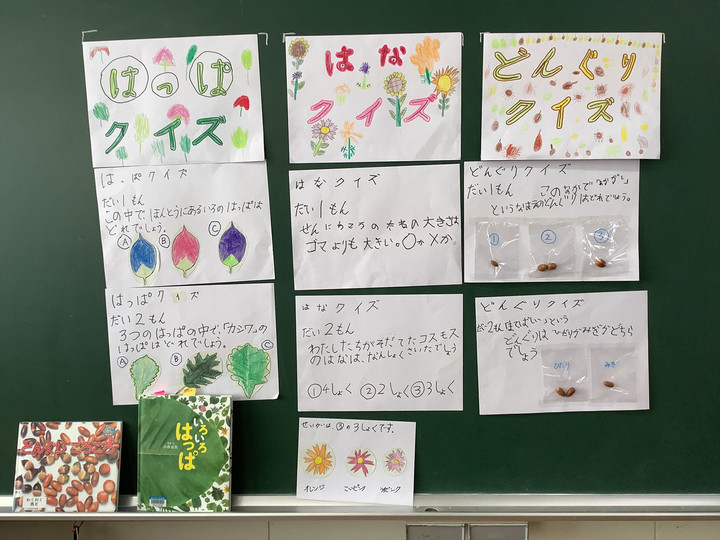 はっぱ
クイズ
はな
クイズ
どんぐり
クイズ
は.ぱクイズ
だい1もん
この中で、ほんとうにあるいろのはっぱは
どれでしょう。
A
B
C
はっぱクイズ
だい2もん
3つのはっぱの中で、「カシワ」の
はっぱはどれでしょう。
A
B
C
はなクイズ
だい1もん
ゴマよりも大きい。〇か×か。
はなクイズ
だい2もん
わたしたちがそだてたコスモス
のはなは、なんしょくさいたでしょう
①4しょく ②2しょく ③3しょく
せいかいは、③の3しょくです。
オレンジ
こいピンク
うすピンク
どんぐりクイズ
だい1もん このなかで
というなまえのどんぐりはどれでしょう。
①
②
③
どんぐりクイズ
という
どんぐりは ひだりかみぎかどちら
でしょう
ひだり
みぎ
いろいろ
はっぱ